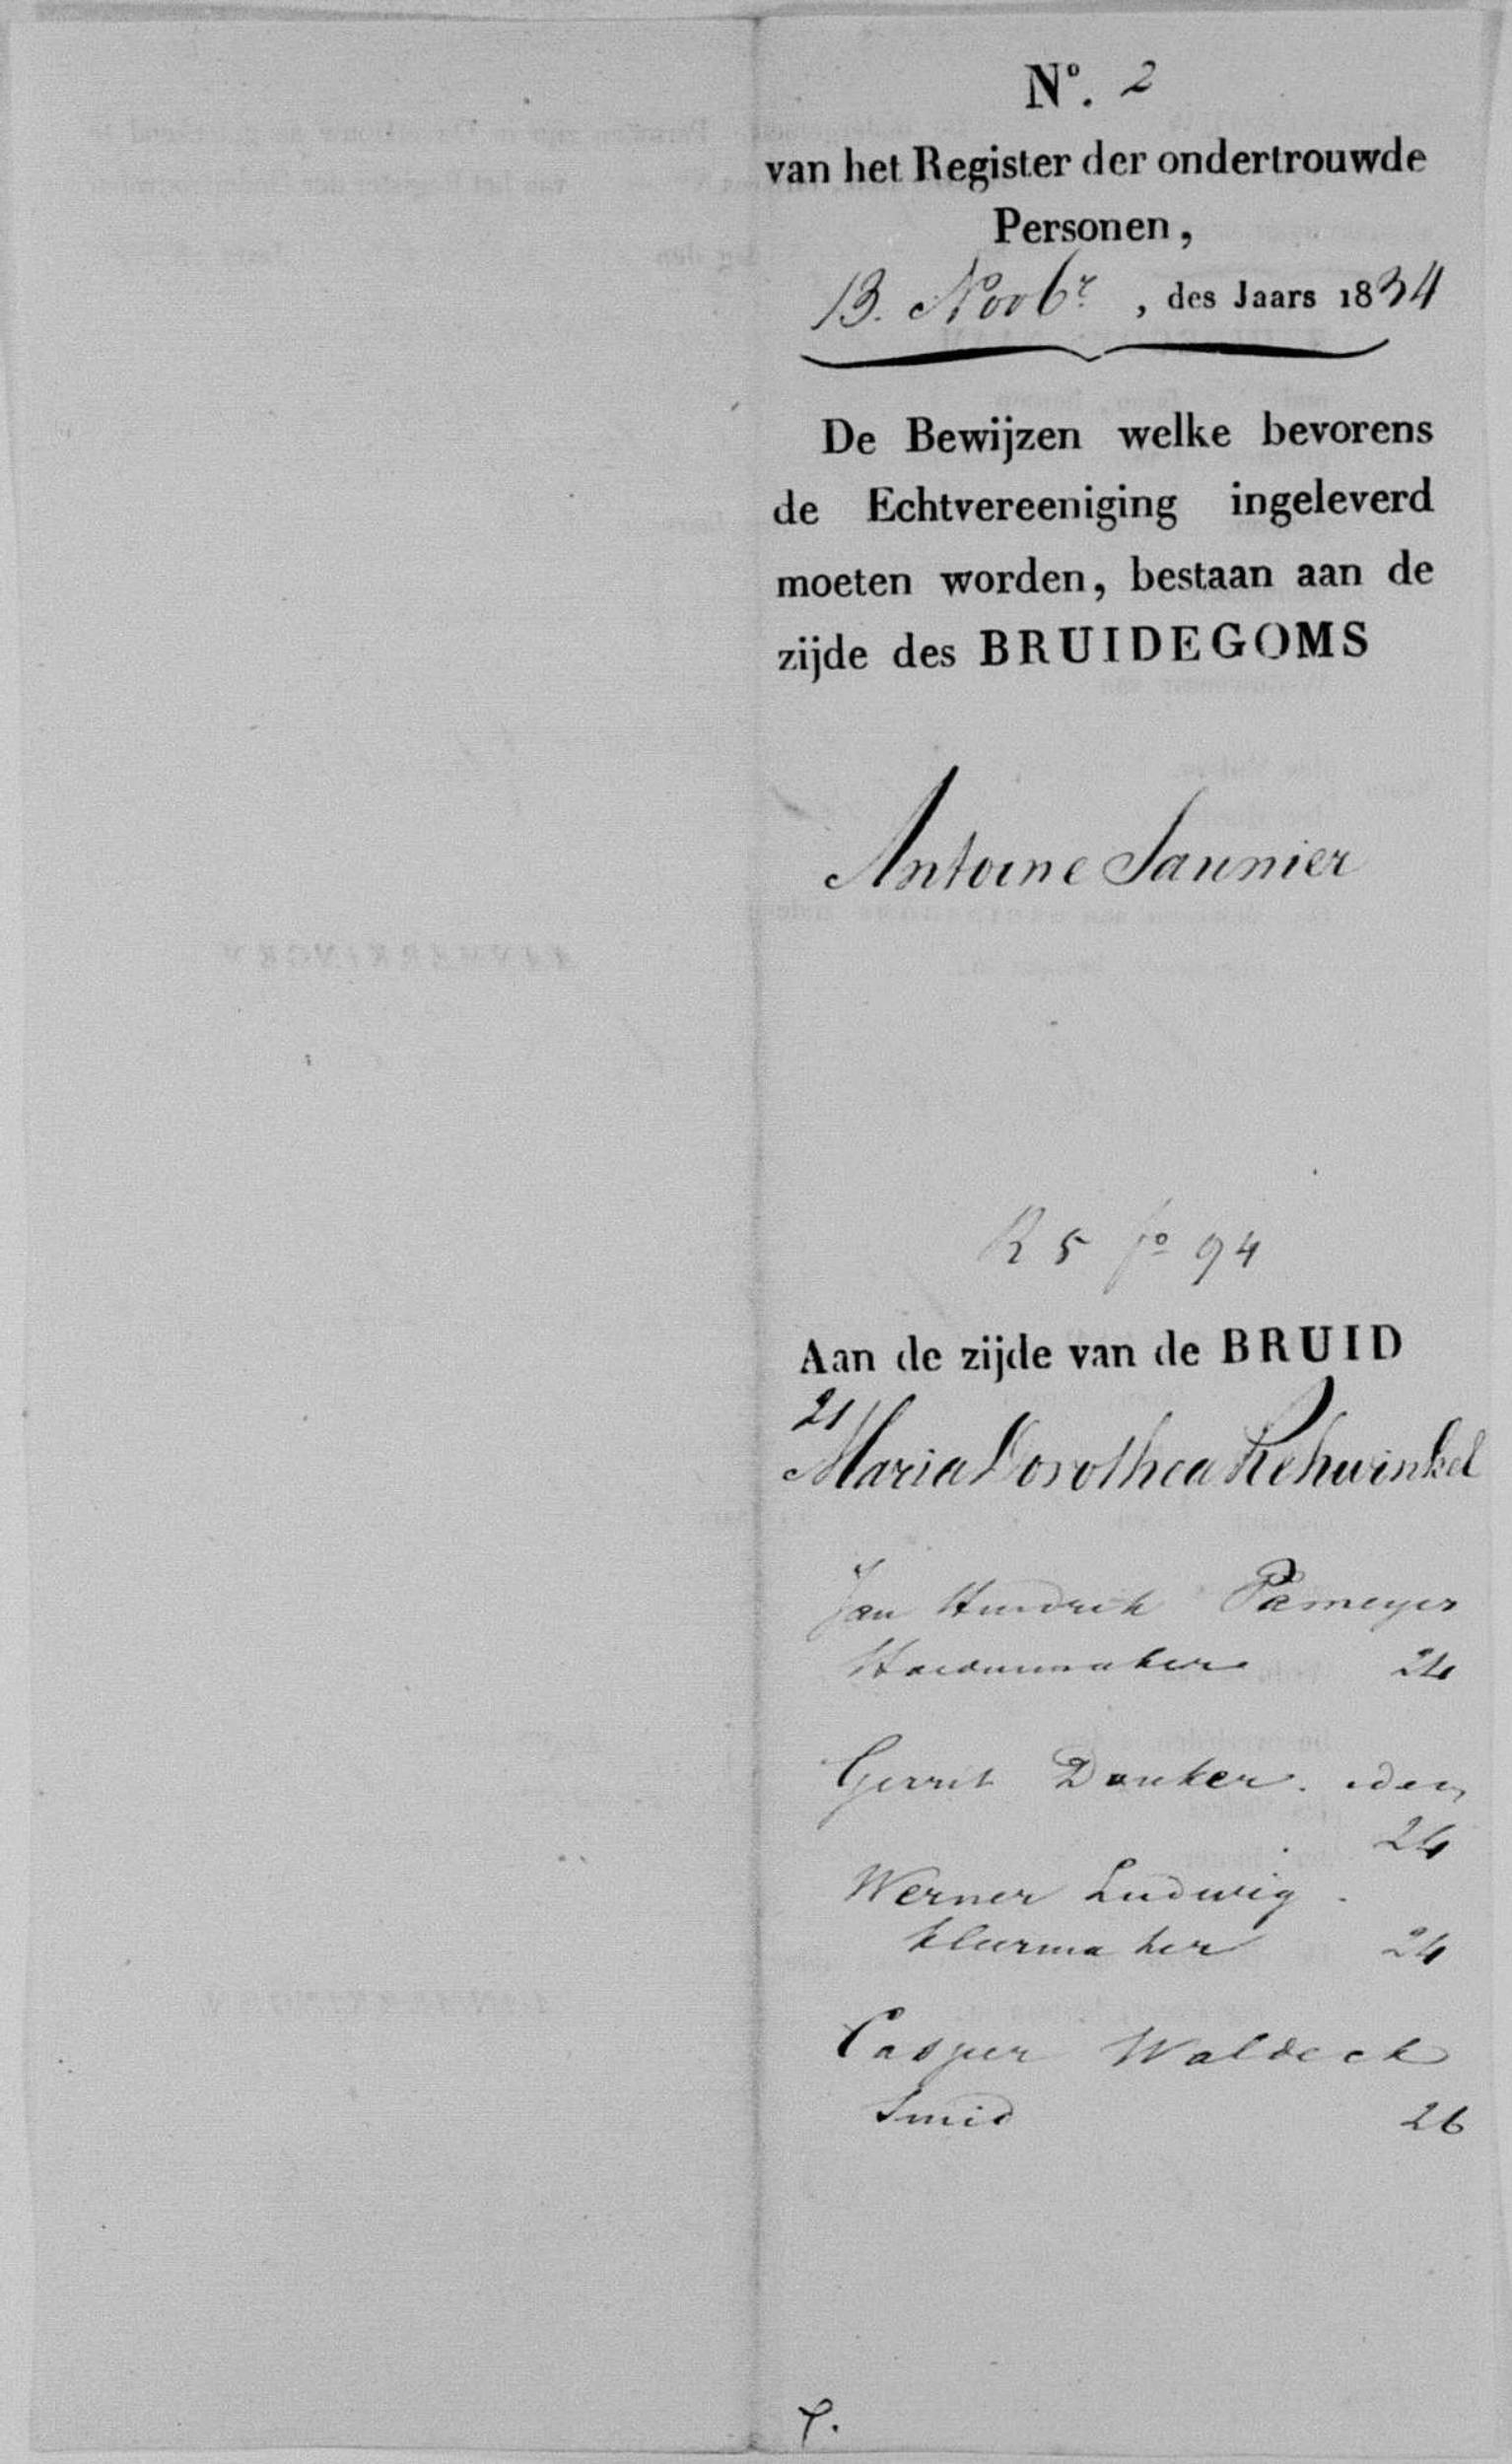 Nº. 2
van het Register der ondertrouwde
Personen,
13. Novbr , des Jaars 1834
De Bewijzen welke bevorens
de Echtvereeniging ingeleverd
moeten worden, bestaan aan de
zijde des BRUIDEGOMS
Antoine Saunier
R 5 fo 94
Aan de zijde van de BRUID
21
Maria Dorothea Rehwinkel
Jan Hendrik Pameyer
24
Gerrit Donker. idem
24
Werner Ludwig
kleermaker 24
Casper Waldeck
Smid 26